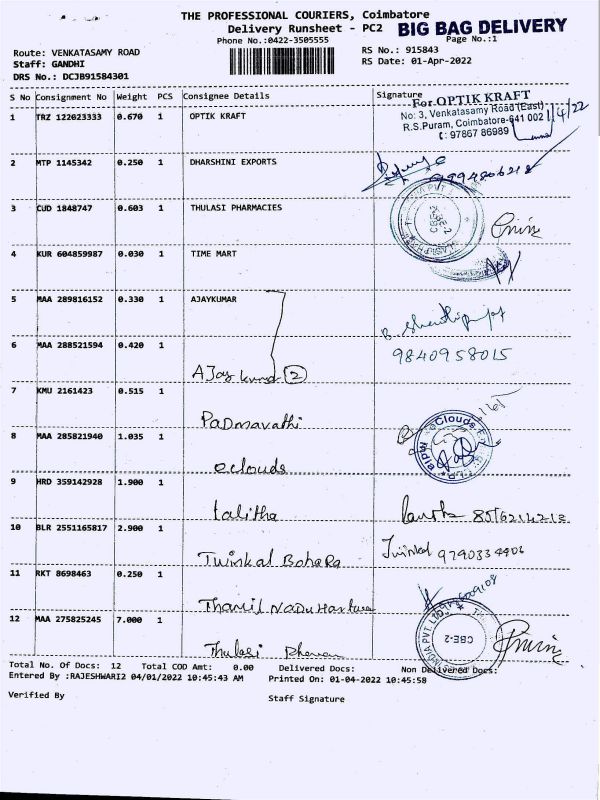 THE PROFESSIONAL COURIERS, Coimbatore
Delivery Runsheet - PC2 BIG BAG DELIVERY
Phone No.:0422-3505555 Page No.:1
Route: VENKATASAMY ROAD RS No.: 915843
Staff: GANDHI RS Date: 01-Apr-2022
DRS No.: DCJB91584301
S No Consignment No Weight PCS Consignee Details Signature
For OPTIK KRAFT
1 TRZ 122023333 0.670 1 OPTIK KRAFT No: 3, Venkatasamy Road (East) 1/4/22
R.S.Puram, Coimbatore-641 002
✆: 97867 86989
2 MTP 1145342 0.250 1 DHARSHINI EXPORTS
9994806218
3 CUD 1848747 0.603 1 THULASI PHARMACIES
CBE-2
4 KUR 604859987 0.030 1 TIME MART
5 MAA 289816152 0.330 1 AJAYKUMAR
6 MAA 288521594 0.420 1 9840958015
AJay kumar 2
7 KMU 2161423 0.515 1
Padmavathi
8 MAA 285821940 1.035 1 eClouds
eclouds
9 HRD 359142928 1.900 1
talitha
10 BLR 2551165817 2.900 1 Twinkal 9790334906
Twinkal Bohara
11 RKT 8698463 0.250 1
Thamil Nadu
12 MAA 275825245 7.000 1 INDIA PVT. LTD CBE-2
Thulasi
Total No. Of Docs: 12 Total COD Amt: 0.00 Delivered Docs: Non Delivered Docs:
Entered By :RAJESHWARI2 04/01/2022 10:45:43 AM Printed On: 01-04-2022 10:45:58
Verified By Staff Signature